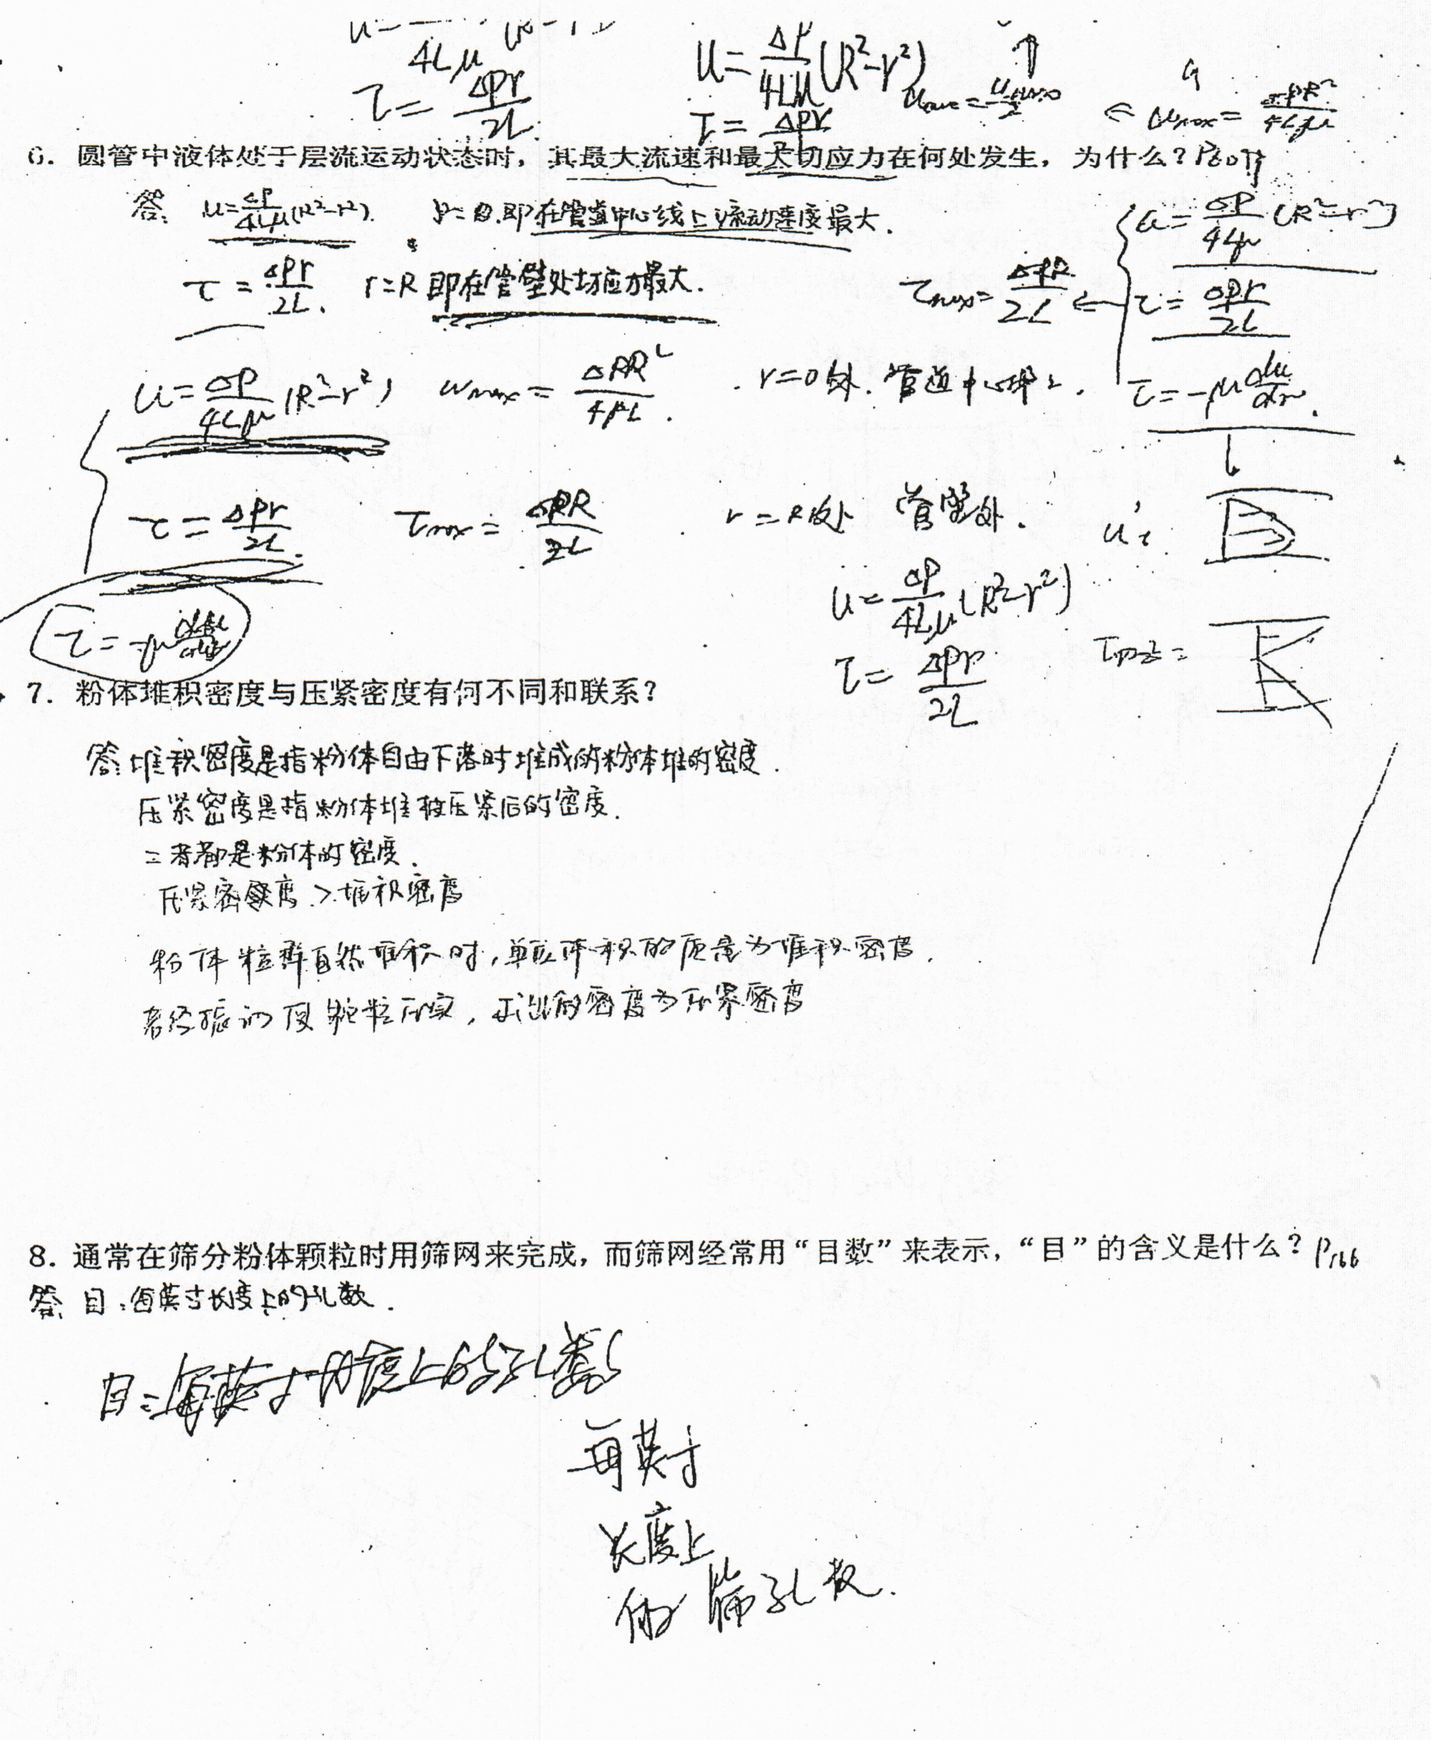 4Lμ
τ = ΔPr/2L
u = ΔP/4Lμ (R²-r²)
τ = ΔPr
umax = ΔPR²/4Lμ
6. 圆管中液体处于层流运动状态时，其最大流速和最大切应力在何处发生，为什么？P60页
答: u = ΔP/4Lμ (R²-r²). 即在管道中心线上流动速度最大.
u = ΔP/4Lμ (R²-r²)
τ = ΔPr/2L. r=R 即在管壁处切应力最大.
τmax = ΔPR/2L ← τ = ΔPr/2L
u = ΔP/4Lμ (R²-r²) umax = ΔPR²/4μL. r=0处. 管道中心
τ = -μ du/dr.
τ = ΔPr/2L. τmax = ΔPR/2L r=R处 管壁处.
u:
u = ΔP/4Lμ (R²-r²)
τ = -μ
τ = ΔPr/2L
7. 粉体堆积密度与压紧密度有何不同和联系？
答: 堆积密度是指粉体自由下落时堆成的粉体堆的密度.
压紧密度是指粉体堆被压紧后的密度.
二者都是粉体的密度.
压紧密度 > 堆积密度
粉体粒群自然堆积时, 单位体积的质量为堆积密度.
若经振动使颗粒压实, 测出的密度为压紧密度
8. 通常在筛分粉体颗粒时用筛网来完成，而筛网经常用“目数”来表示，“目”的含义是什么？P166
答: 目: 每英寸长度上的孔数.
目: 每英寸长度上的孔数
每英寸
长度上
的 筛孔数.